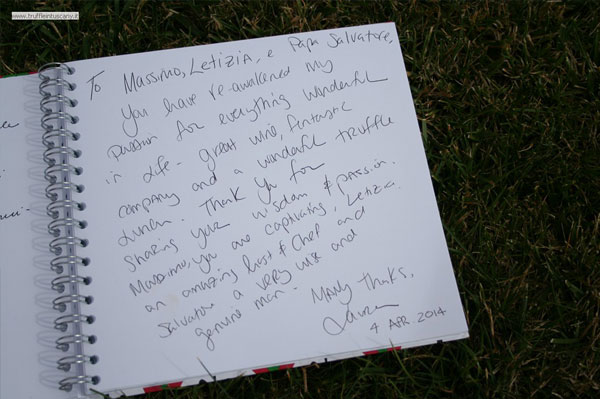 www.truffleintuscany.it
To Massimo, Letizia, e Papa Salvatore,
You have re-awakened my
passion for everything wonderful
in life - great wine, fantastic
company and a wonderful truffle
Lunch. Thank you for
sharing your wisdom & passion.
Massimo, you are captivating, Letizia
an amazing host & chef and
Salvatore a very wise and
genuine man.
Many thanks,
4 APR 2014